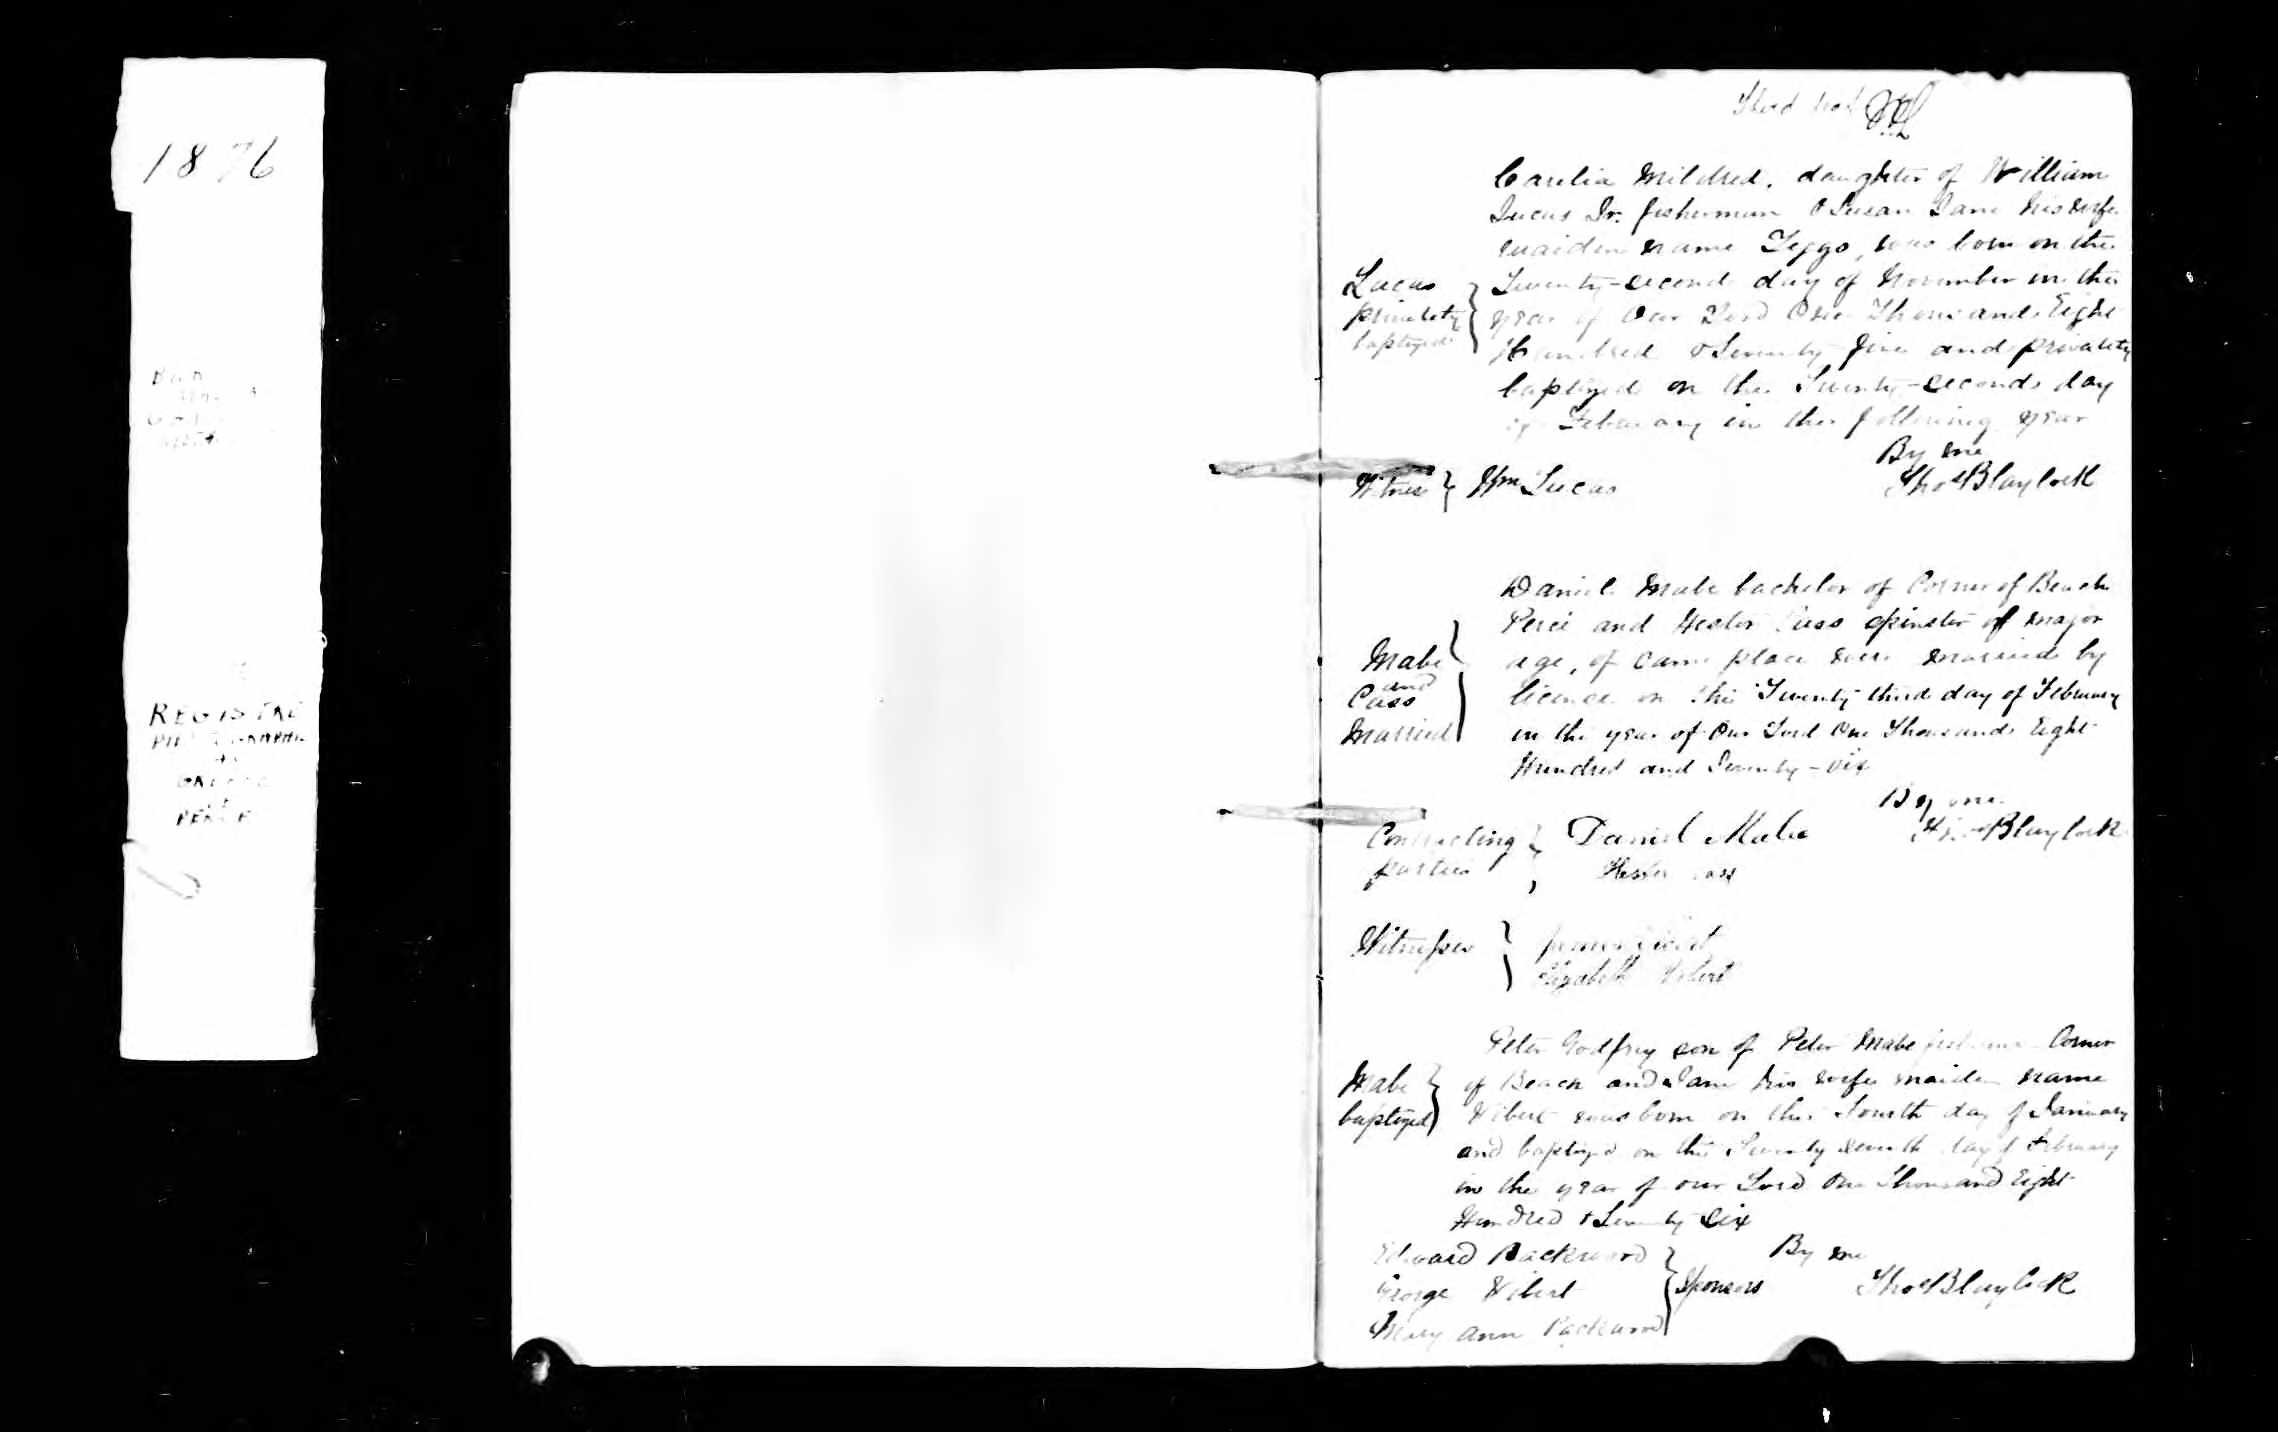 1876
REGISTRE
Third
Carelia Mildred, daughter of William
Lucas Jr. fisherman & Susan Jane his wife
maiden name Teggo, was born on the
Lucas
privately
baptized
Twenty-second day of November in the
year of Our Lord One Thousand Eight
Hundred & Seventy five and privately
baptized on the Twenty-second day
of February in the following year
By me
Witness Wm Lucas
Thos Blaylock
Daniel Mabe bachelor of Corner of Beach
Percé and Hester Cass spinster of major
Mabe
and
Cass
Married
age, of same place were married by
licence on the Twenty third day of February
in the year of Our Lord One Thousand Eight
Hundred and Seventy-six
By me
Thos Blaylock
Contracting
parties
Daniel Mabe
Hester Cass
Witnesses
Elizabeth Vibert
Peter Godfrey son of Peter Mabe fisherman Corner
Mabe
baptized
of Beach and Jane his wife maiden name
Vibert was born on the Fourth day of January
and baptized on the Twenty seventh day of February
in the year of our Lord One Thousand Eight
Hundred & Seventy Six
By me
Edward Packwood
George Vibert
Mary Ann Packwood
Sponsors
Thos Blaylock